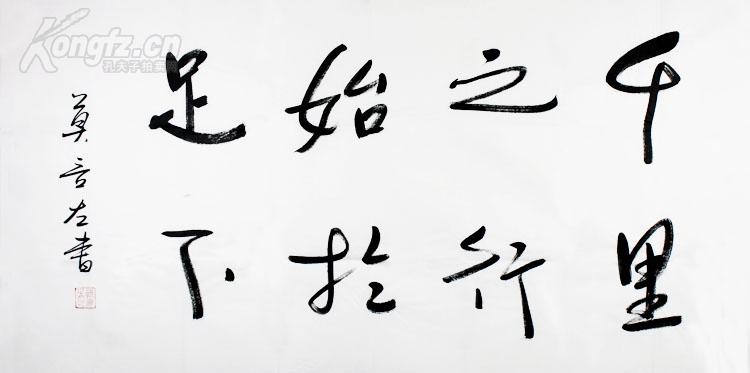 千里
之行
始於
足下
莫言左書
Kongfz.cn
孔夫子拍卖